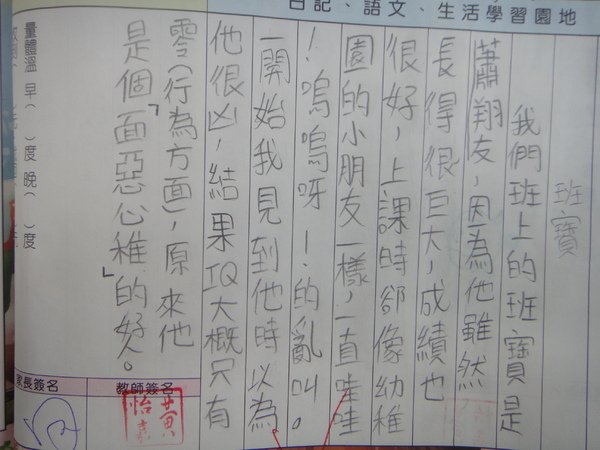 日記、語文、生活學習園地
班寶
我們班上的班寶是
蕭翔友，因為他雖然
長得很巨大，成績也
很好，上課時卻像幼稚
園的小朋友一樣，一直哇哇
！嗚嗚呀！！的亂叫。
一開始我見到他時以為
他很凶，結果IQ大概只有
零(行為方面)，原來他
是個「面惡心稚」的好人。
量體溫 早( )度晚( )度
教師簽名
黃怡嘉
家長簽名